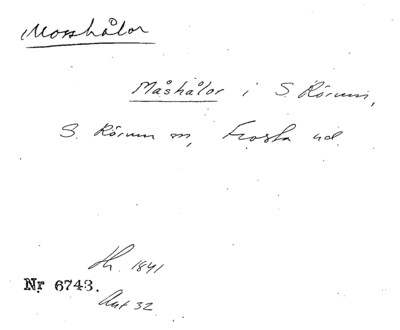 Mosshålor
Måshålor i S. Rörum,
S. Rörum sn, Frosta hd.
Th. 1841
Nr 6743.
Ant 32